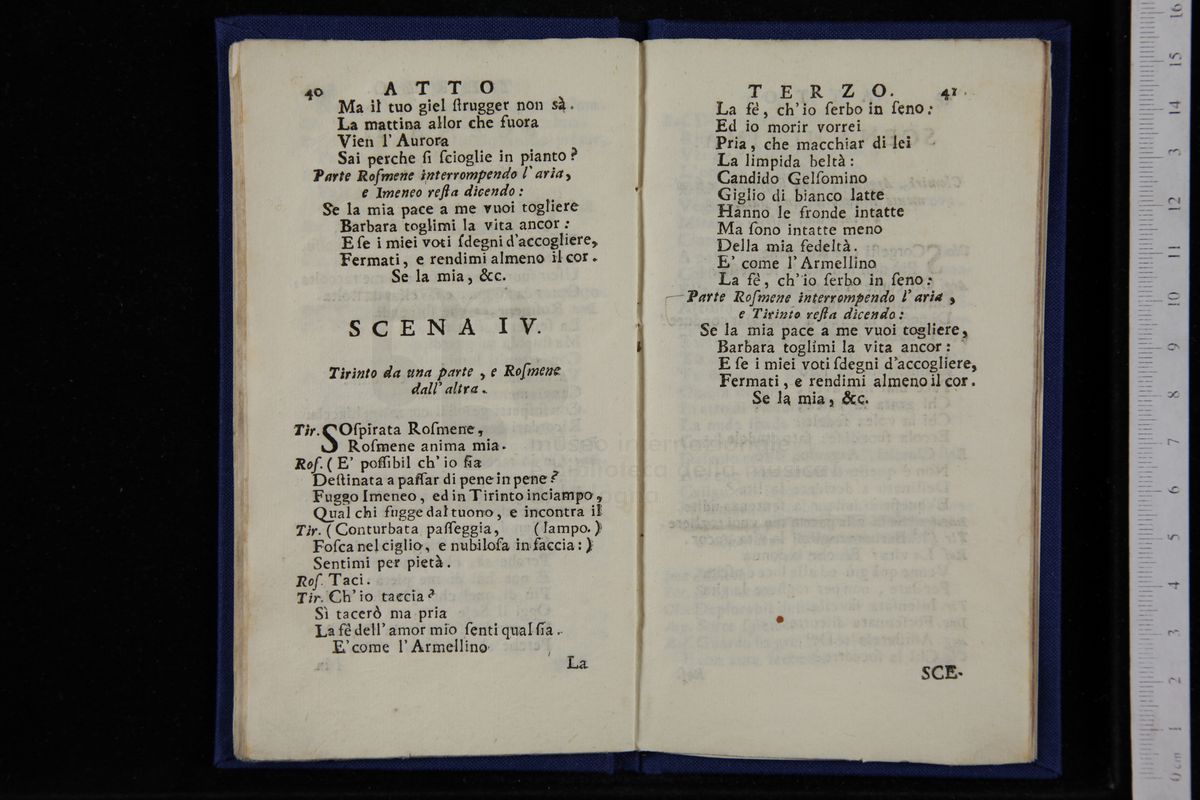 40 ATTO
Ma il tuo giel ſtrugger non sà.
La mattina allor che fuora
Vien l'Aurora
Sai perche ſi ſcioglie in pianto?
Parte Roſmene interrompendo l'aria,
e Imeneo reſta dicendo:
Se la mia pace a me vuoi togliere
Barbara toglimi la vita ancor:
E ſe i miei voti ſdegni d'accogliere,
Fermati, e rendimi almeno il cor.
Se la mia, &c.
SCENA IV.
Tirinto da una parte, e Roſmene
dall'altra.
Tir. SOſpirata Roſmene,
Roſmene anima mia.
Roſ. (E' poſſibil ch'io ſia
Deſtinata a paſſar di pene in pene?
Fuggo Imeneo, ed in Tirinto inciampo,
Qual chi fugge dal tuono, e incontra il
Tir. (Conturbata paſſeggia, (lampo.)
Foſca nel ciglio, e nubiloſa in faccia:)
Sentimi per pietà.
Roſ. Taci.
Tir. Ch'io taccia?
Sì tacerò ma pria
La fè dell'amor mio ſenti qual ſia.
E' come l'Armellino
La
TERZO. 41
La fè, ch'io ſerbo in ſeno:
Ed io morir vorrei
Pria, che macchiar di lei
La limpida beltà:
Candido Gelſomino
Giglio di bianco latte
Hanno le fronde intatte
Ma ſono intatte meno
Della mia fedeltà.
E' come l'Armellino
La fè, ch'io ſerbo in ſeno:
Parte Roſmene interrompendo l'aria,
e Tirinto reſta dicendo:
Se la mia pace a me vuoi togliere,
Barbara toglimi la vita ancor:
E ſe i miei voti ſdegni d'accogliere,
Fermati, e rendimi almeno il cor.
Se la mia, &c.
SCE-
museo
biblioteca della musica
0 cm 1 2 3 4 5 6 7 8 9 10 11 12 13 14 15 16